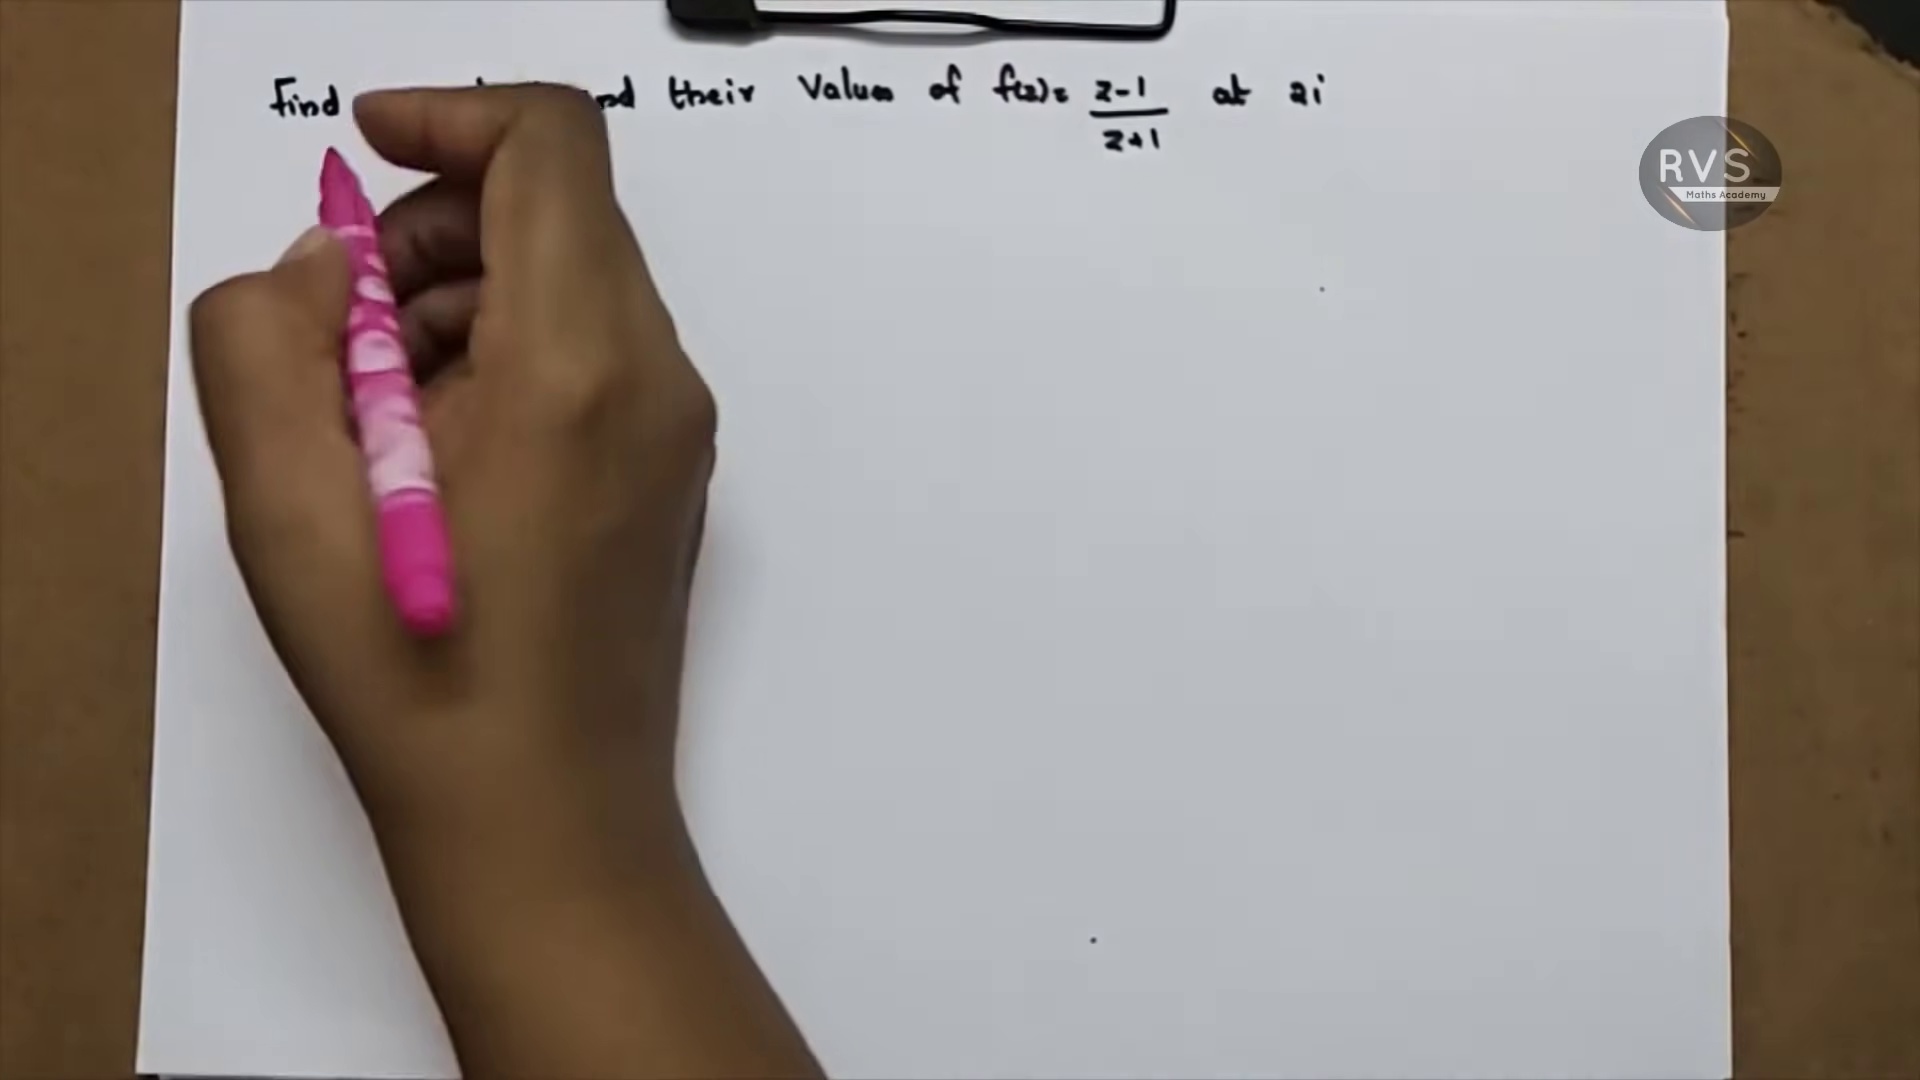 Find and their Values of f(z)= z-1 / z+1 at 2i
RVS
Maths Academy